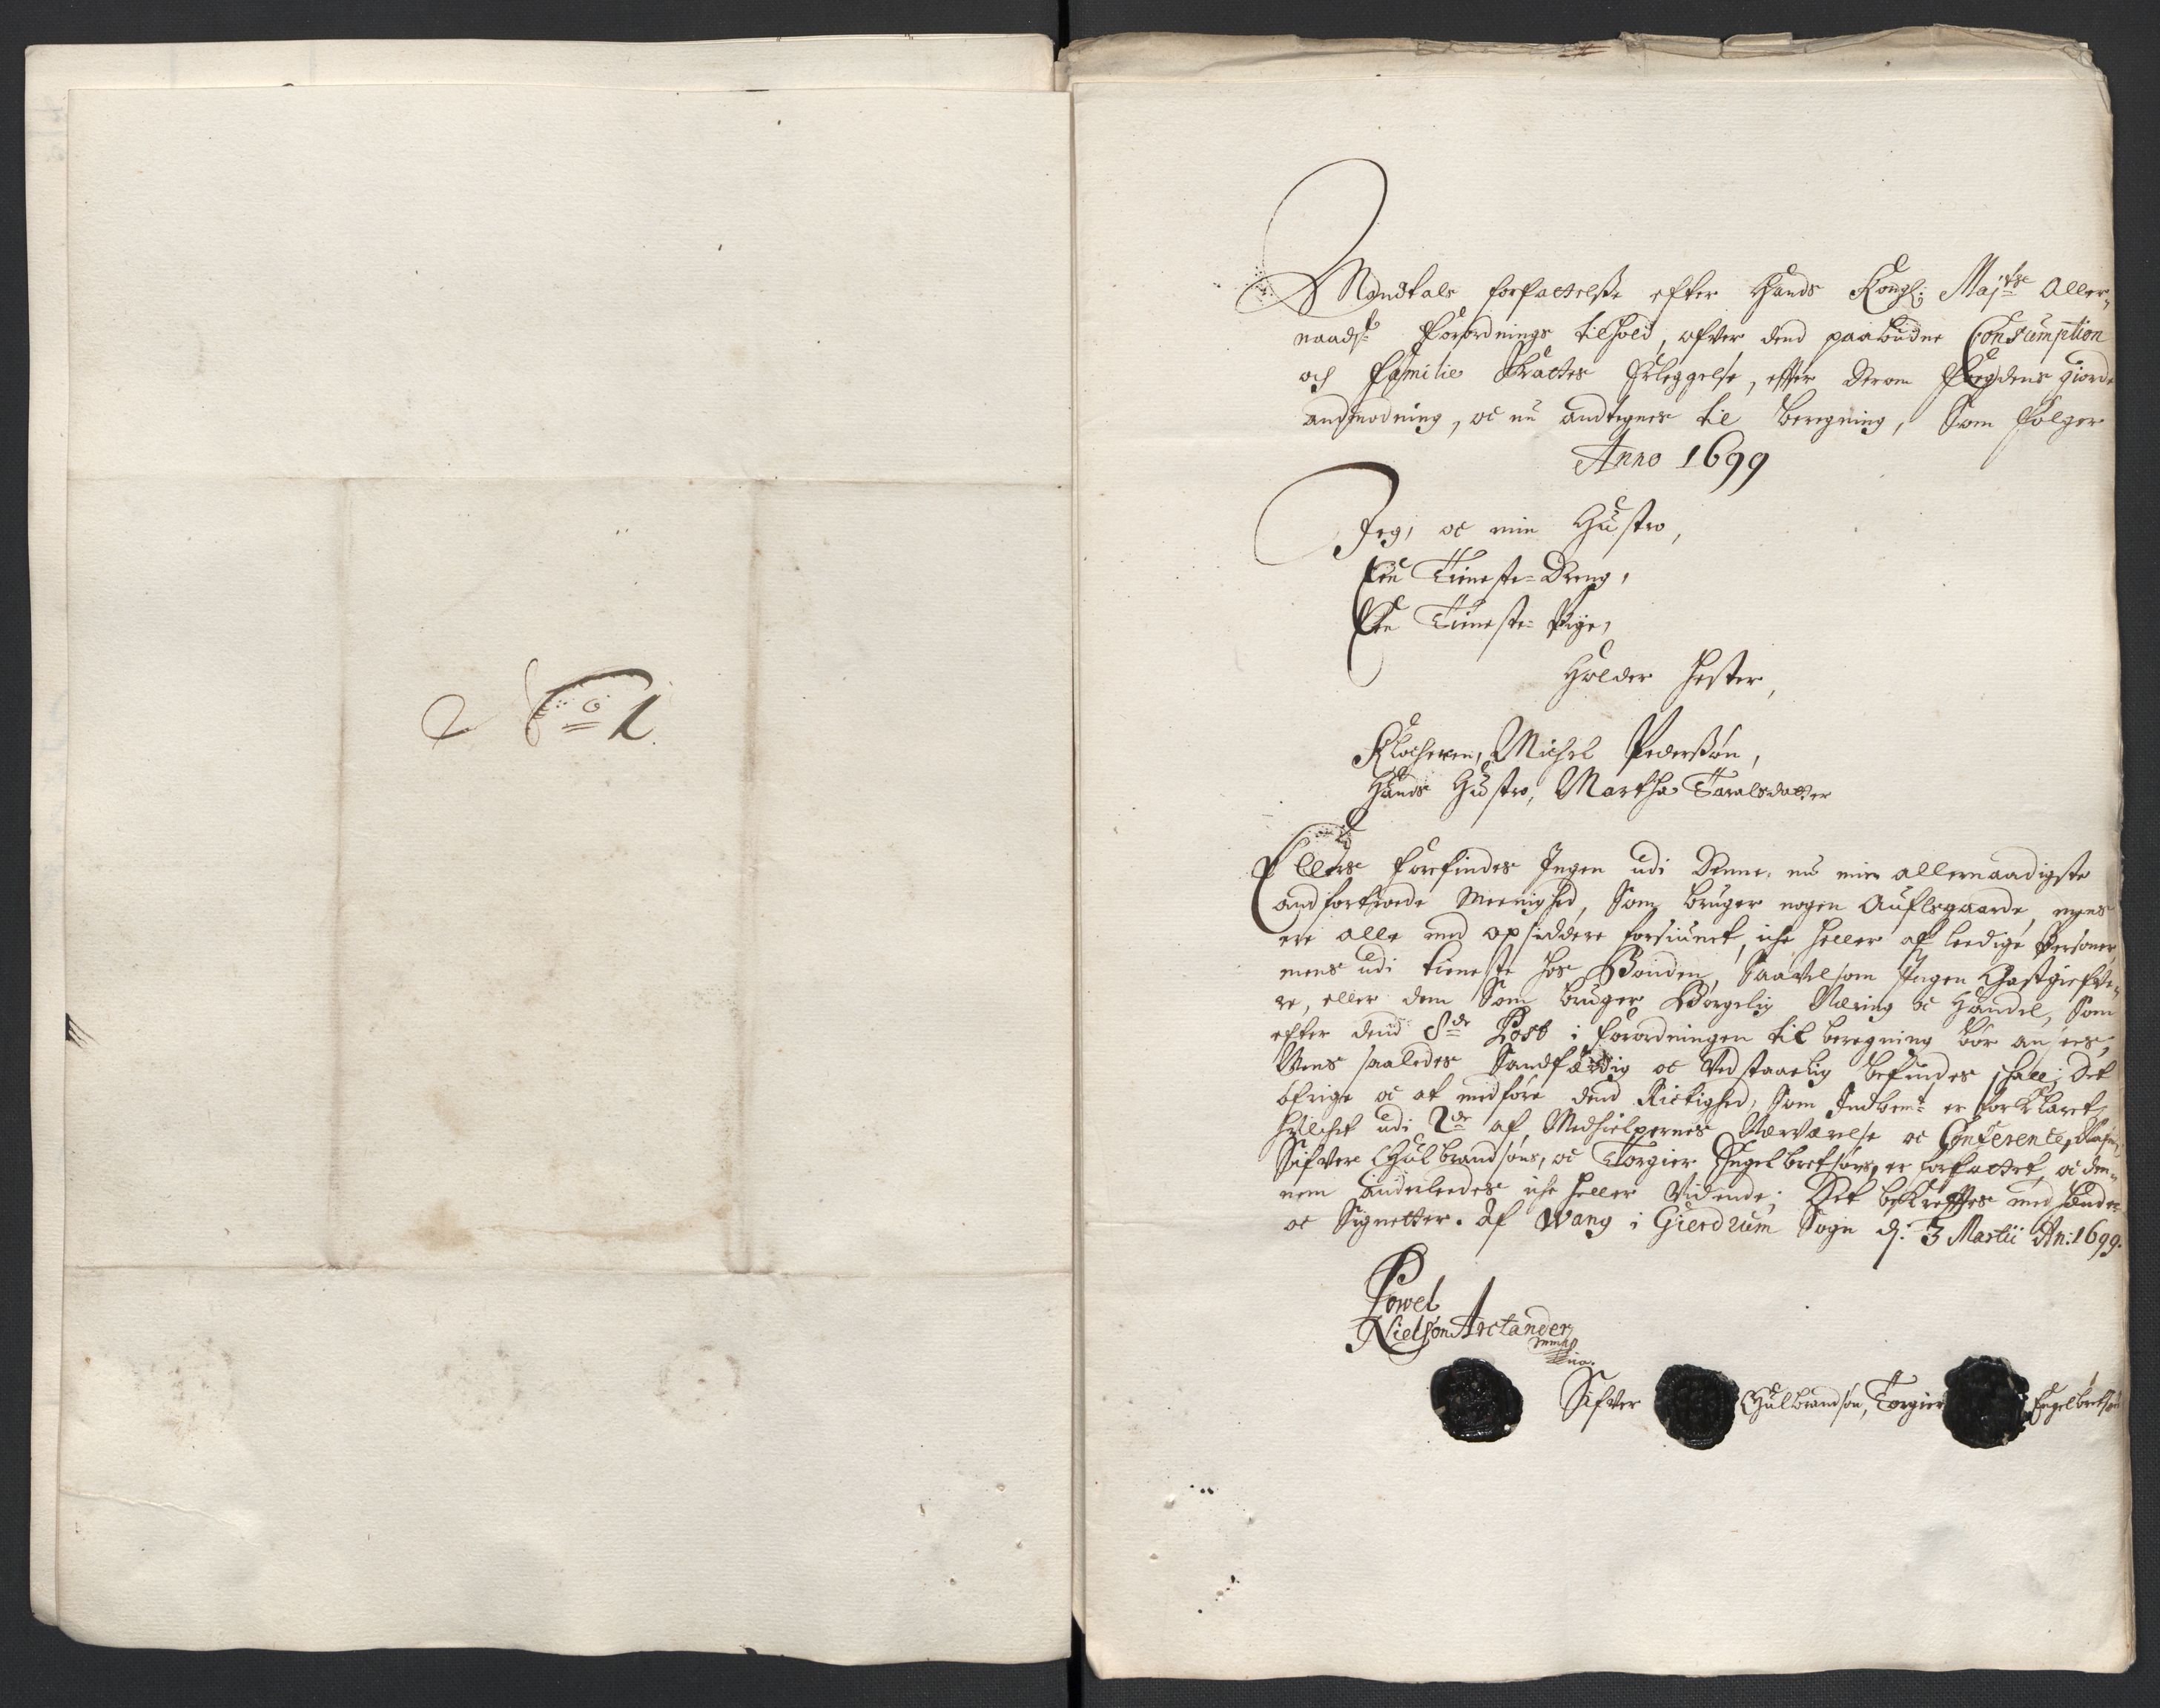 No 1.
Mandtals forfattelsse efter Hands Kongl: Majts Aller-
naadst Forordnings tilhold, ofver dend paabudne Consumption
och Familie Skattes Erleggelse, efter derom Fogdens giorde
andmodning, oc nu andtegnes til beregning, Som følger
Anno 1699
Jeg, oc min Hustro,
Een Tieneste-Dreng,
Een Tieneste-Pige,
Holder Hester,
Klocheren, Michel Pederssøn,
Hands Hustro, Martha Taralsdatter
Ellers forefindes Ingen udi denne, nu min allernaadigste
andfortroede Meenighed, Som bruger nogen Auflsgaarde, mens
ere alle med opsiddere forsiunet, iche heller af leedige Personer,
mens udi tieneste hos Bonden, Saavelsom Ingen Gastgiefve-
re, eller dem Som bruger Borgelig Næring oc Handel, Som
efter dend 8de Post i forordningen til beregning bør an sees,
Mens saaledes Sandfærdig oc Vedstaaelig befindes skall; Det
øfrige oc at medføre dend Rictighed, Som Indbemt er forklaret,
hvilchet udi 2de af Medhielpernes Nærværelse oc Conference,
Sifver Gulbrandsøns, oc Torgier Engelbretsøns, er forfattet, oc den-
nem anderleedes iche heller Vidende; Det bekreftes med hænder
oc Signetter. Af Wang i Gierdrum Sogn d: 3 Martii An: 1699.
Powel
Nielsøn Arctander
mmap
Sifver Gulbrandsøn, Torgier Engelbretsøn